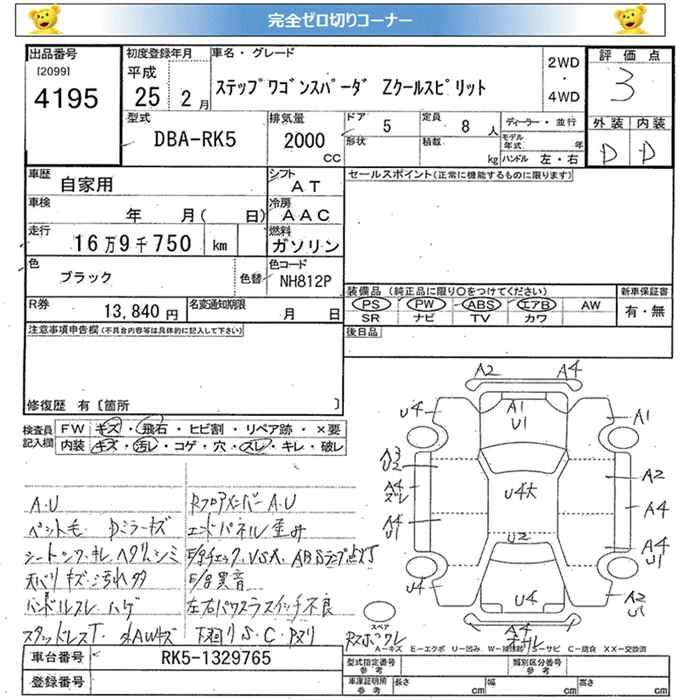 完全ゼロ切りコーナー
出品番号
[2099]
4195
初度登録年月
平成
25 2月
車名・グレード
ステップワゴンスパーダ Zクールスピリット
2WD
・
4WD
評価点
3
外装 内装
D D
型式
DBA-RK5
排気量
2000
cc
ドア 5
定員 8人
形状
積載 kg
ディーラー・並行
モデル年式 年
ハンドル 左・右
車歴
自家用
シフト
AT
セールスポイント(正常に機能するものに限ります)
車検
年 月( 日)
冷房
AAC
走行
16万9千750 km
燃料
ガソリン
色
ブラック
色替
色コード
NH812P
装備品(純正品に限り○をつけてください)
PS PW ABS エアB AW
SR ナビ TV カワ
新車保証書
有・無
R券
13,840円
名変通知期限
月 日
後日品
注意事項申告欄(不具合内容等は具体的に記入して下さい)
修復歴 有[箇所 ]
検査員記入欄
FW キズ・飛石・ヒビ割・リペア跡・×要
内装 キズ・汚レ・コゲ・穴・スレ・キレ・破レ
A.U
ペット毛 Dミラーキズ
シートシワ.キレ.ヘタリ.シミ
天バリキズ汚れ多
ハンドルスレ ハゲ
スタッドレスT. 水AWキズ
RフロアメンバーA.U
エンドパネル歪み
E/gチェック.VSA.ABSランプ点灯
E/g異音
左右パワスラスイッチ不良
下廻りS.C.Pヌリ
A2 A4
U4
A1
U1
A1
A3
U2
A4
ズレ
A4
U1
U4大
A2
A4
U2
A4
U1
U4
U4
A2
U1
A4
スペア
Rスポワレ
A-キズ E-エクボ U-凹み W-補修跡 S-サビ C-腐食 XX-交換済
車台番号
RK5-1329765
登録番号
型式指定番号
参考
類別区分番号
参考
車庫証明所
参考
長さ cm
幅 cm
高さ cm